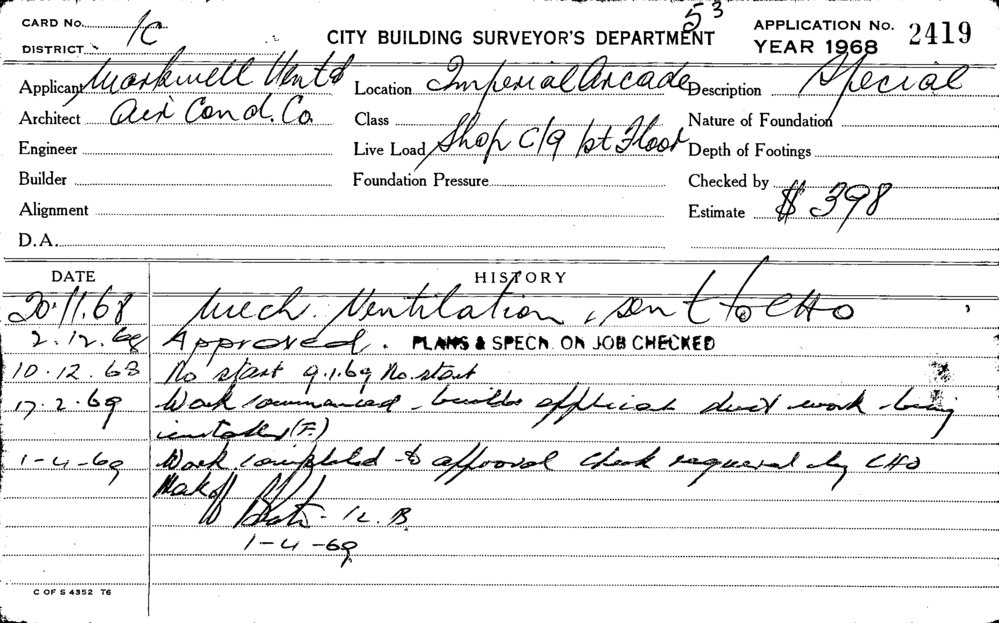 CARD No. 1C
53
CITY BUILDING SURVEYOR'S DEPARTMENT
APPLICATION No. 2419
YEAR 1968
DISTRICT
Applicant Markwell Vent &
Location Imperial Arcade
Description Special
Architect Air Cond. Co.
Class
Nature of Foundation
Engineer
Live Load Shop C/9 1st Floor
Depth of Footings
Builder
Foundation Pressure
Checked by
Alignment
Estimate $ 398
D.A.
DATE HISTORY
20.11.68 Mech. Ventilation, sent to CHO
2.12.68 Approved. PLANS & SPECN. ON JOB CHECKED
10.12.68 No start 9.1.69 No start
17.2.69 Work commenced duct work being
installed (F.)
1-4-69 Work completed to approval check required by CHO
12. B.
1-4-69
C OF S 4352 T6